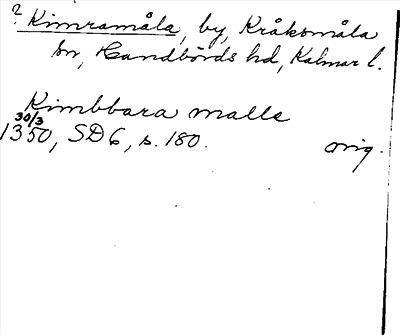 ? Kimramåla, by, Kråksmåla
sn, Handbörds hd, Kalmar l.
Kimbbara malle
30/3
1350, SD 6, s. 180. orig.